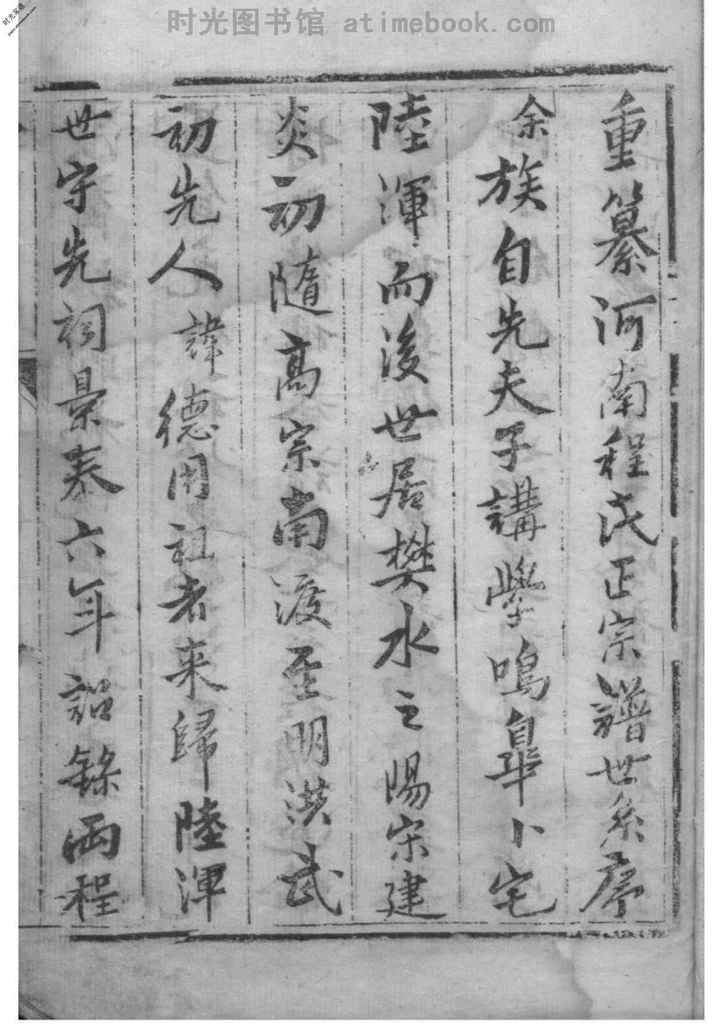 时光图书馆 atimebook.com
重纂河南程氏正宗譜世系序
余族自先夫子講學鳴皐卜宅
陸渾而後世居樊水之陽宋建
炎初隨高宗南渡至明洪武
初先人諱德用祖者来歸陸渾
世守先祠景泰六年詔錄兩程